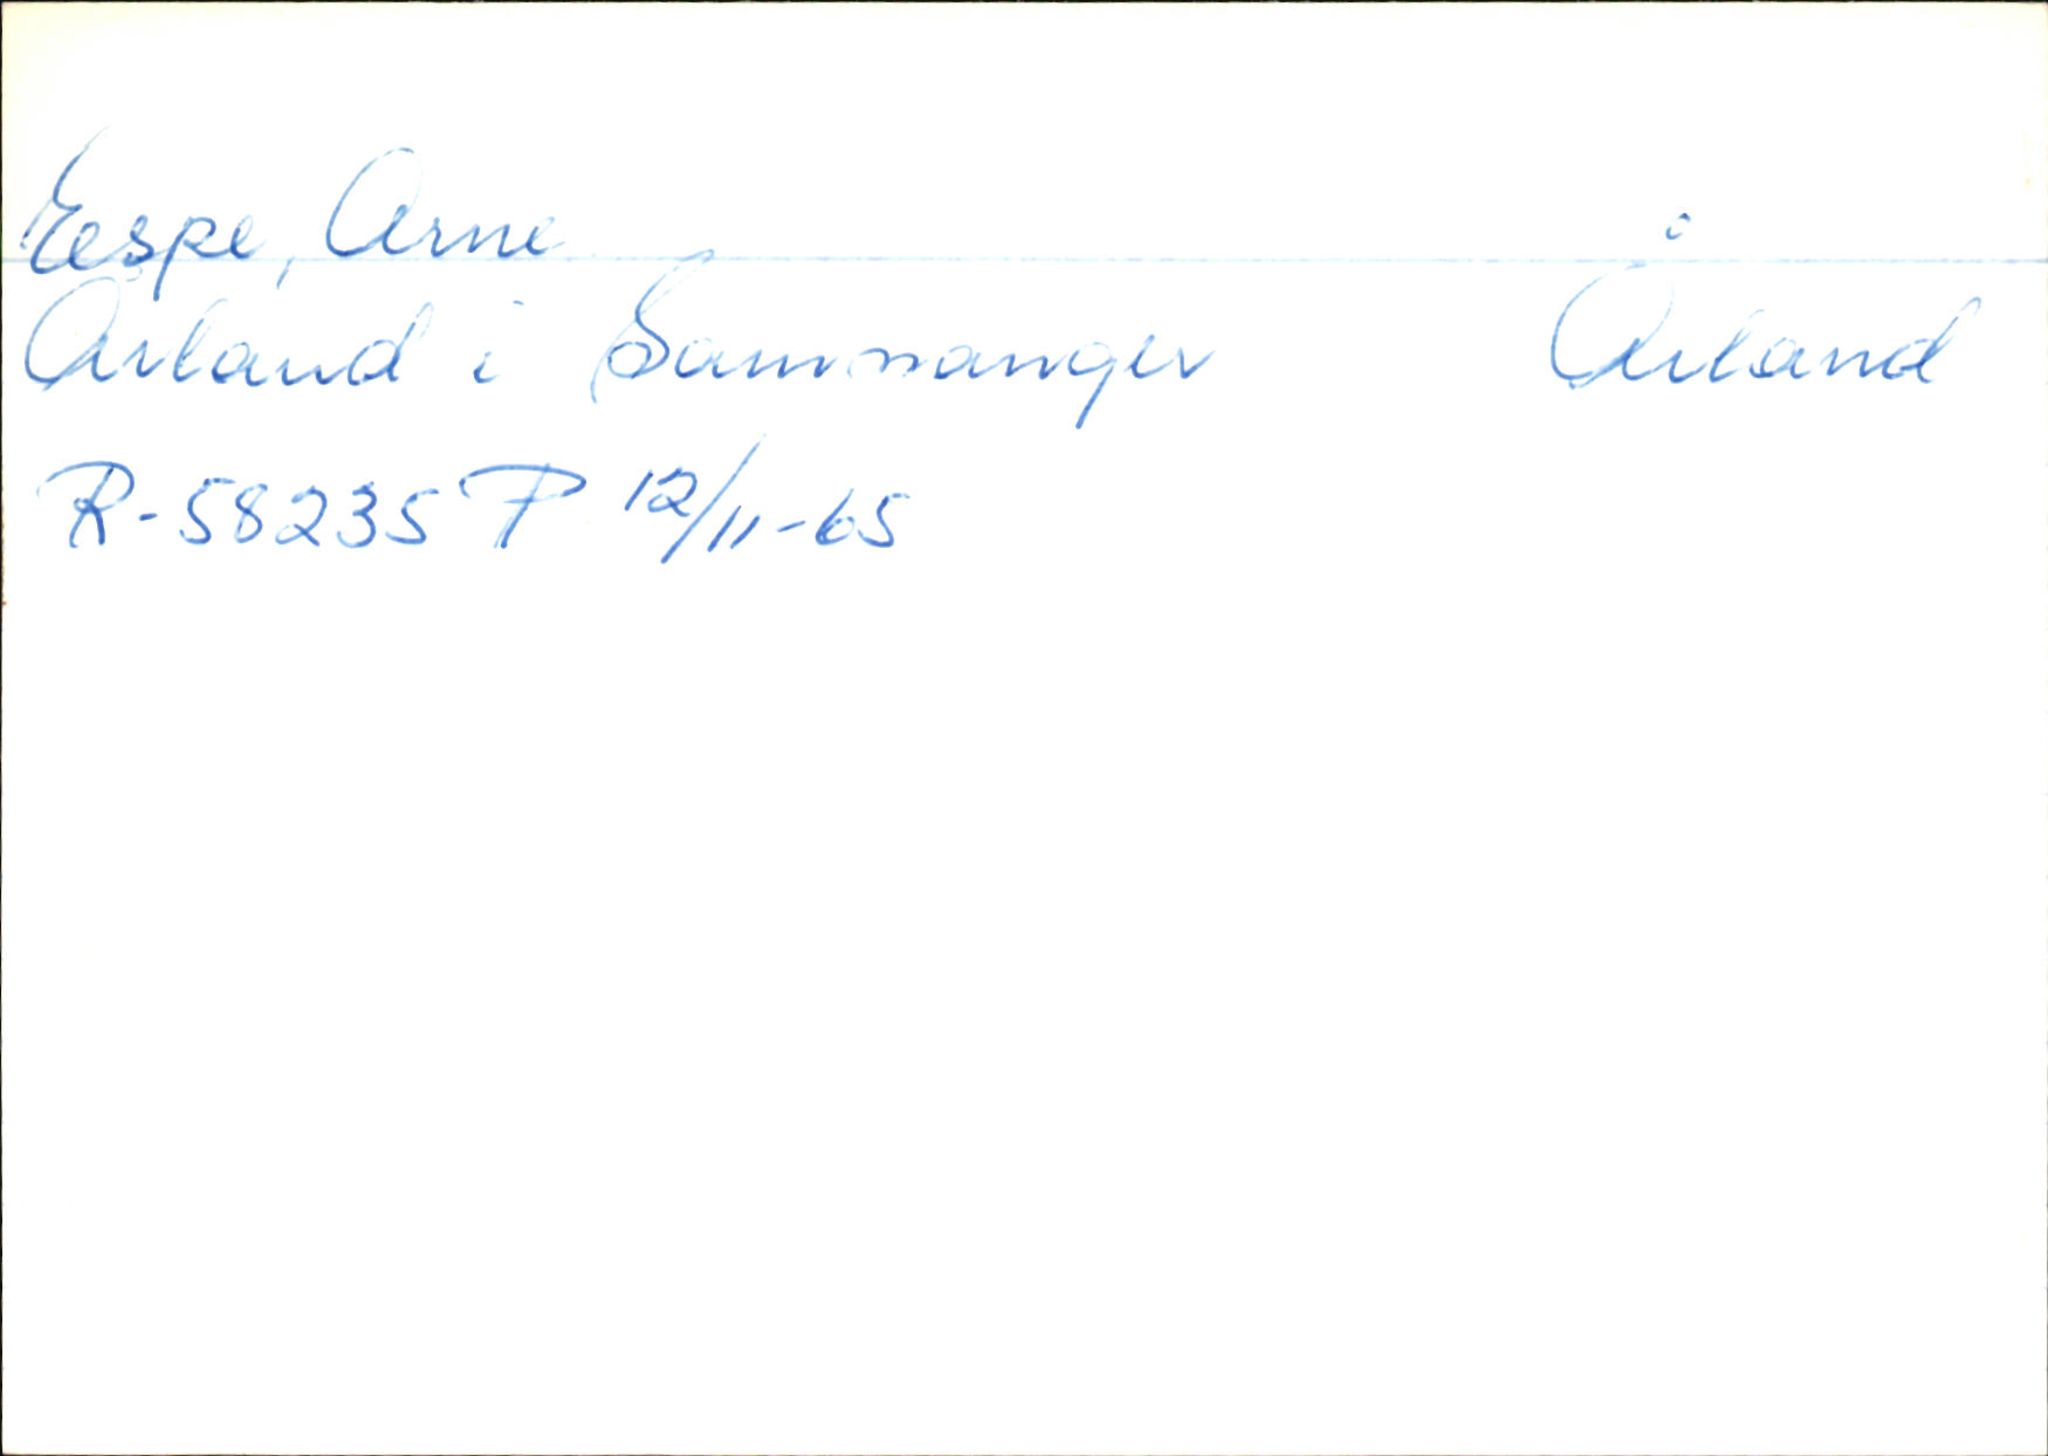 Espe, Arne
Årland i Samnanger Årland
R-58235 P 12/11-65